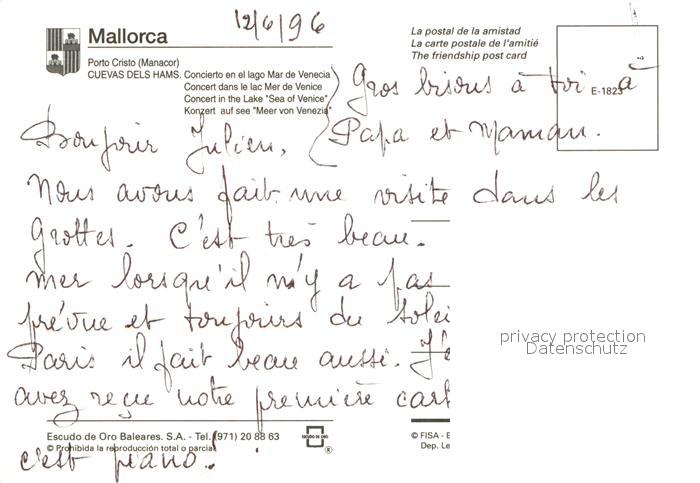 12/6/96
Mallorca
Porto Cristo (Manacor)
CUEVAS DELS HAMS. Concierto en el lago Mar de Venecia
Concert dans le lac Mer de Venice
Concert in the Lake "Sea of Venice"
Konzert auf see "Meer von Venezia"
La postal de la amistad
La carte postale de l'amitié
The friendship post card
E-1823
Gros bisous à toi à
Papa et Maman.
Bonjour Julien,
Nous avons fait une visite dans les
grottes. C'est très beau.
mer lorsqu'il n'y a pas
prévue et toujours du solei
Paris il fait beau aussi. J'e
avez reçu notre première cart
c'est piano!
privacy protection
Datenschutz
Escudo de Oro Baleares. S.A. - Tel. (971) 20 88 63
© Prohibida la reproducción total o parcial
ESCUDO DE ORO
®
© FISA - E
Dep. Le